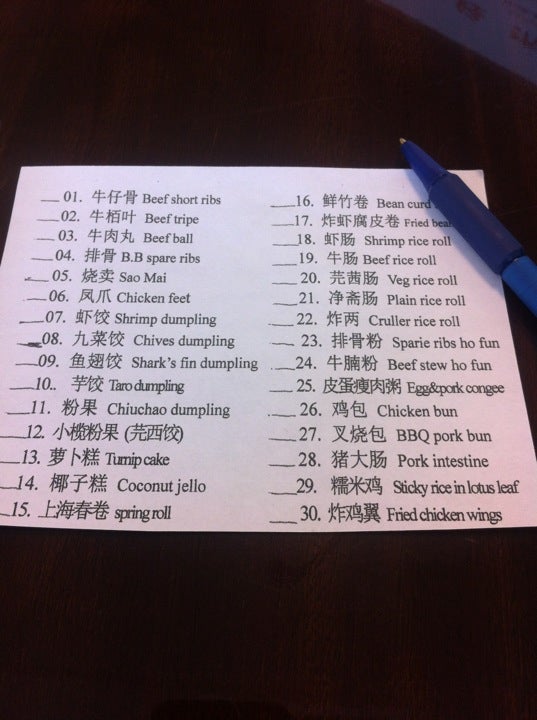 01. 牛仔骨 Beef short ribs
02. 牛栢叶 Beef tripe
03. 牛肉丸 Beef ball
04. 排骨 B.B spare ribs
05. 烧卖 Sao Mai
06. 凤爪 Chicken feet
07. 虾饺 Shrimp dumpling
08. 九菜饺 Chives dumpling
09. 鱼翅饺 Shark's fin dumpling
10.. 芋饺 Taro dumpling
11. 粉果 Chiuchao dumpling
12. 小榄粉果 (芫西饺)
13. 萝卜糕 Turnip cake
14. 椰子糕 Coconut jello
15. 上海春卷 spring roll
16. 鲜竹卷 Bean curd
17. 炸虾腐皮卷 Fried bean
18. 虾肠 Shrimp rice roll
19. 牛肠 Beef rice roll
20. 芫茜肠 Veg rice roll
21. 净斋肠 Plain rice roll
22. 炸两 Cruller rice roll
23. 排骨粉 Sparie ribs ho fun
24. 牛腩粉 Beef stew ho fun
25. 皮蛋瘦肉粥 Egg&pork congee
26. 鸡包 Chicken bun
27. 叉烧包 BBQ pork bun
28. 猪大肠 Pork intestine
29. 糯米鸡 Sticky rice in lotus leaf
30. 炸鸡翼 Fried chicken wings